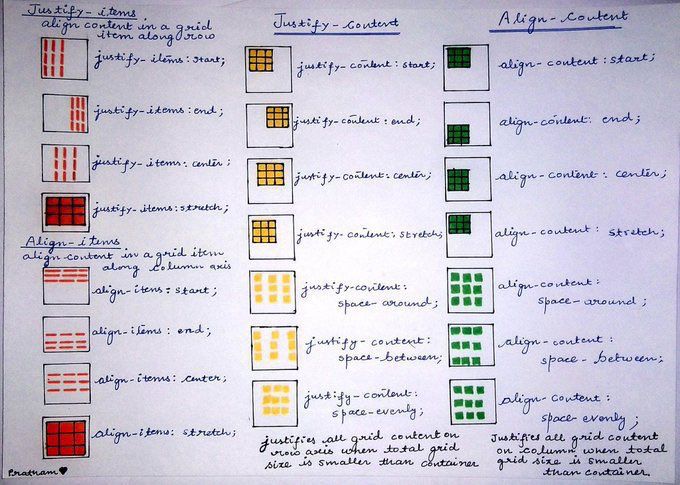 Justify-items
align content in a grid
item along row
justify-items: start;
justify-items: end;
justify-items: center;
justify-items: stretch;
Align-items
align content in a grid item
along column axis
align-items: start;
align-items: end;
align-items: center;
align-items: stretch;
Pratham
Justify-content
justify-content: start;
justify-content: end;
justify-content: center;
justify-content: stretch;
justify-content:
space-around;
justify-content:
space-between;
justify-content:
space-evenly;
justifies all grid content on
row axis when total grid
size is smaller than container
Align-content
align-content: start;
align-content: end;
align-content: center;
align-content: stretch;
align-content:
space-around;
align-content:
space-between;
align-content:
space-evenly;
Justifies all grid content
on column when total
grid size is smaller
than container.